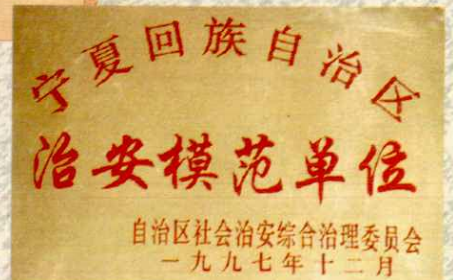 宁夏回族自治区
治安模范单位
自治区社会治安综合治理委员会
一九九七年十二月